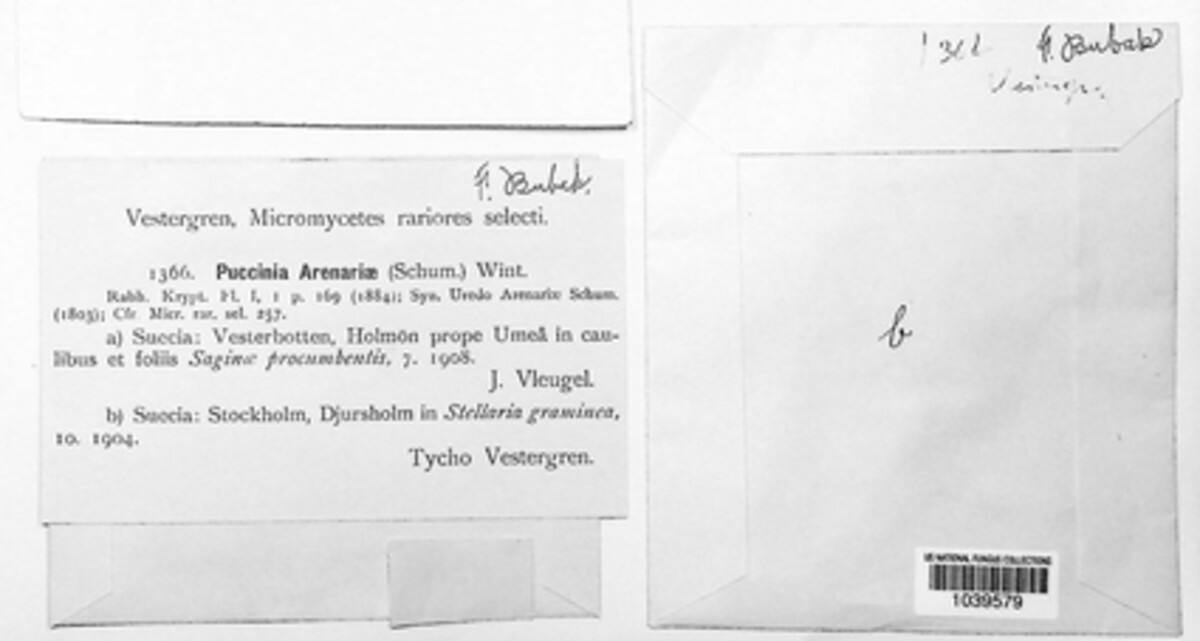 F. Bubak.
Vestergren, Micromycetes rariores selecti.
1366. Puccinia Arenariæ (Schum.) Wint.
Rabh. Krypt. Fl. I, 1 p. 169 (1884); Syn. Uredo Arenariæ Schum.
(1803); Cfr. Micr. rar. sel. 257.
a) Suecia: Vesterbotten, Holmön prope Umeå in cau-
libus et foliis Saginæ procumbentis, 7. 1908.
J. Vleugel.
b) Suecia: Stockholm, Djursholm in Stellaria graminea,
10. 1904.
Tycho Vestergren.
F. Bubak
b
US NATIONAL FUNGUS COLLECTIONS
1039579